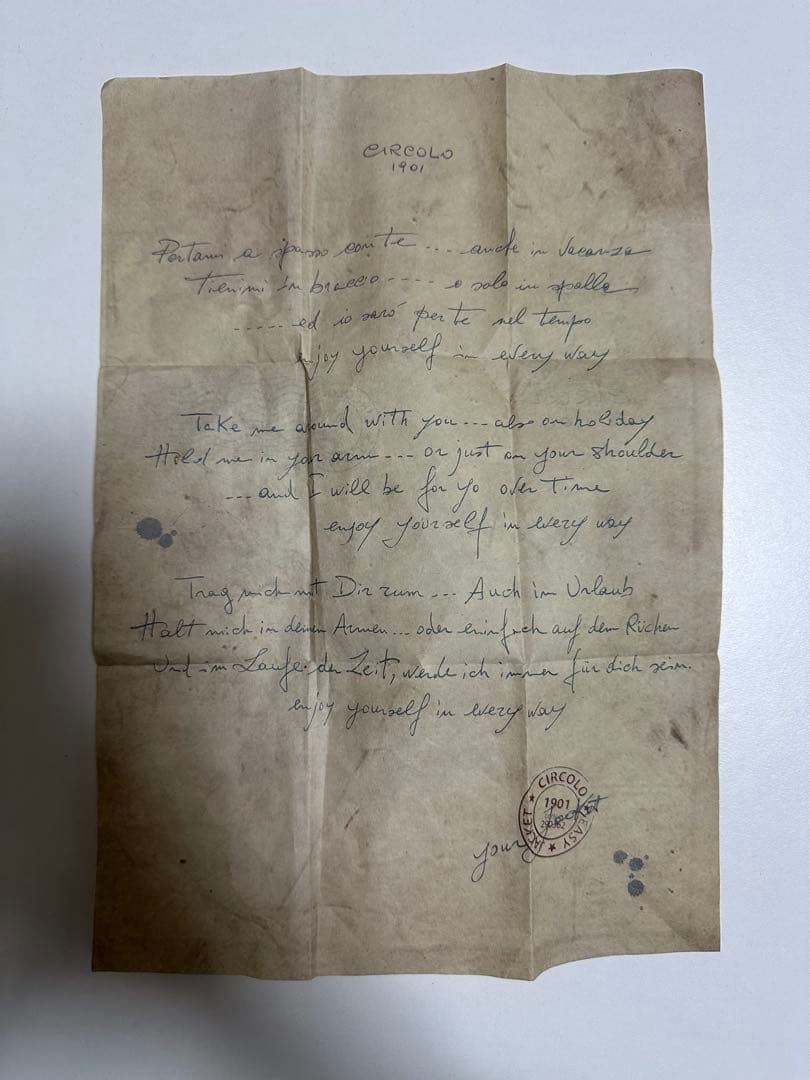 CIRCOLO
1901
Portami a spasso con te .... anche in vacanza
Tienimi in braccio ..... o solo in spalla
..... ed io sarò per te nel tempo
enjoy yourself in every way
Take me around with you ... also on holiday
Hold me in your arm ... or just on your shoulder
... and I will be for yo over time
enjoy yourself in every way
Trag mich mit Dir rum ... Auch im Urlaub
Halt mich in deinen Armen ... oder eininfach auf dem Rücken
Und im Laufe der Zeit, werde ich immer für dich sein.
enjoy yourself in every way
CIRCOLO ★ EASY ★ JACKET ★
1901
your Jacket